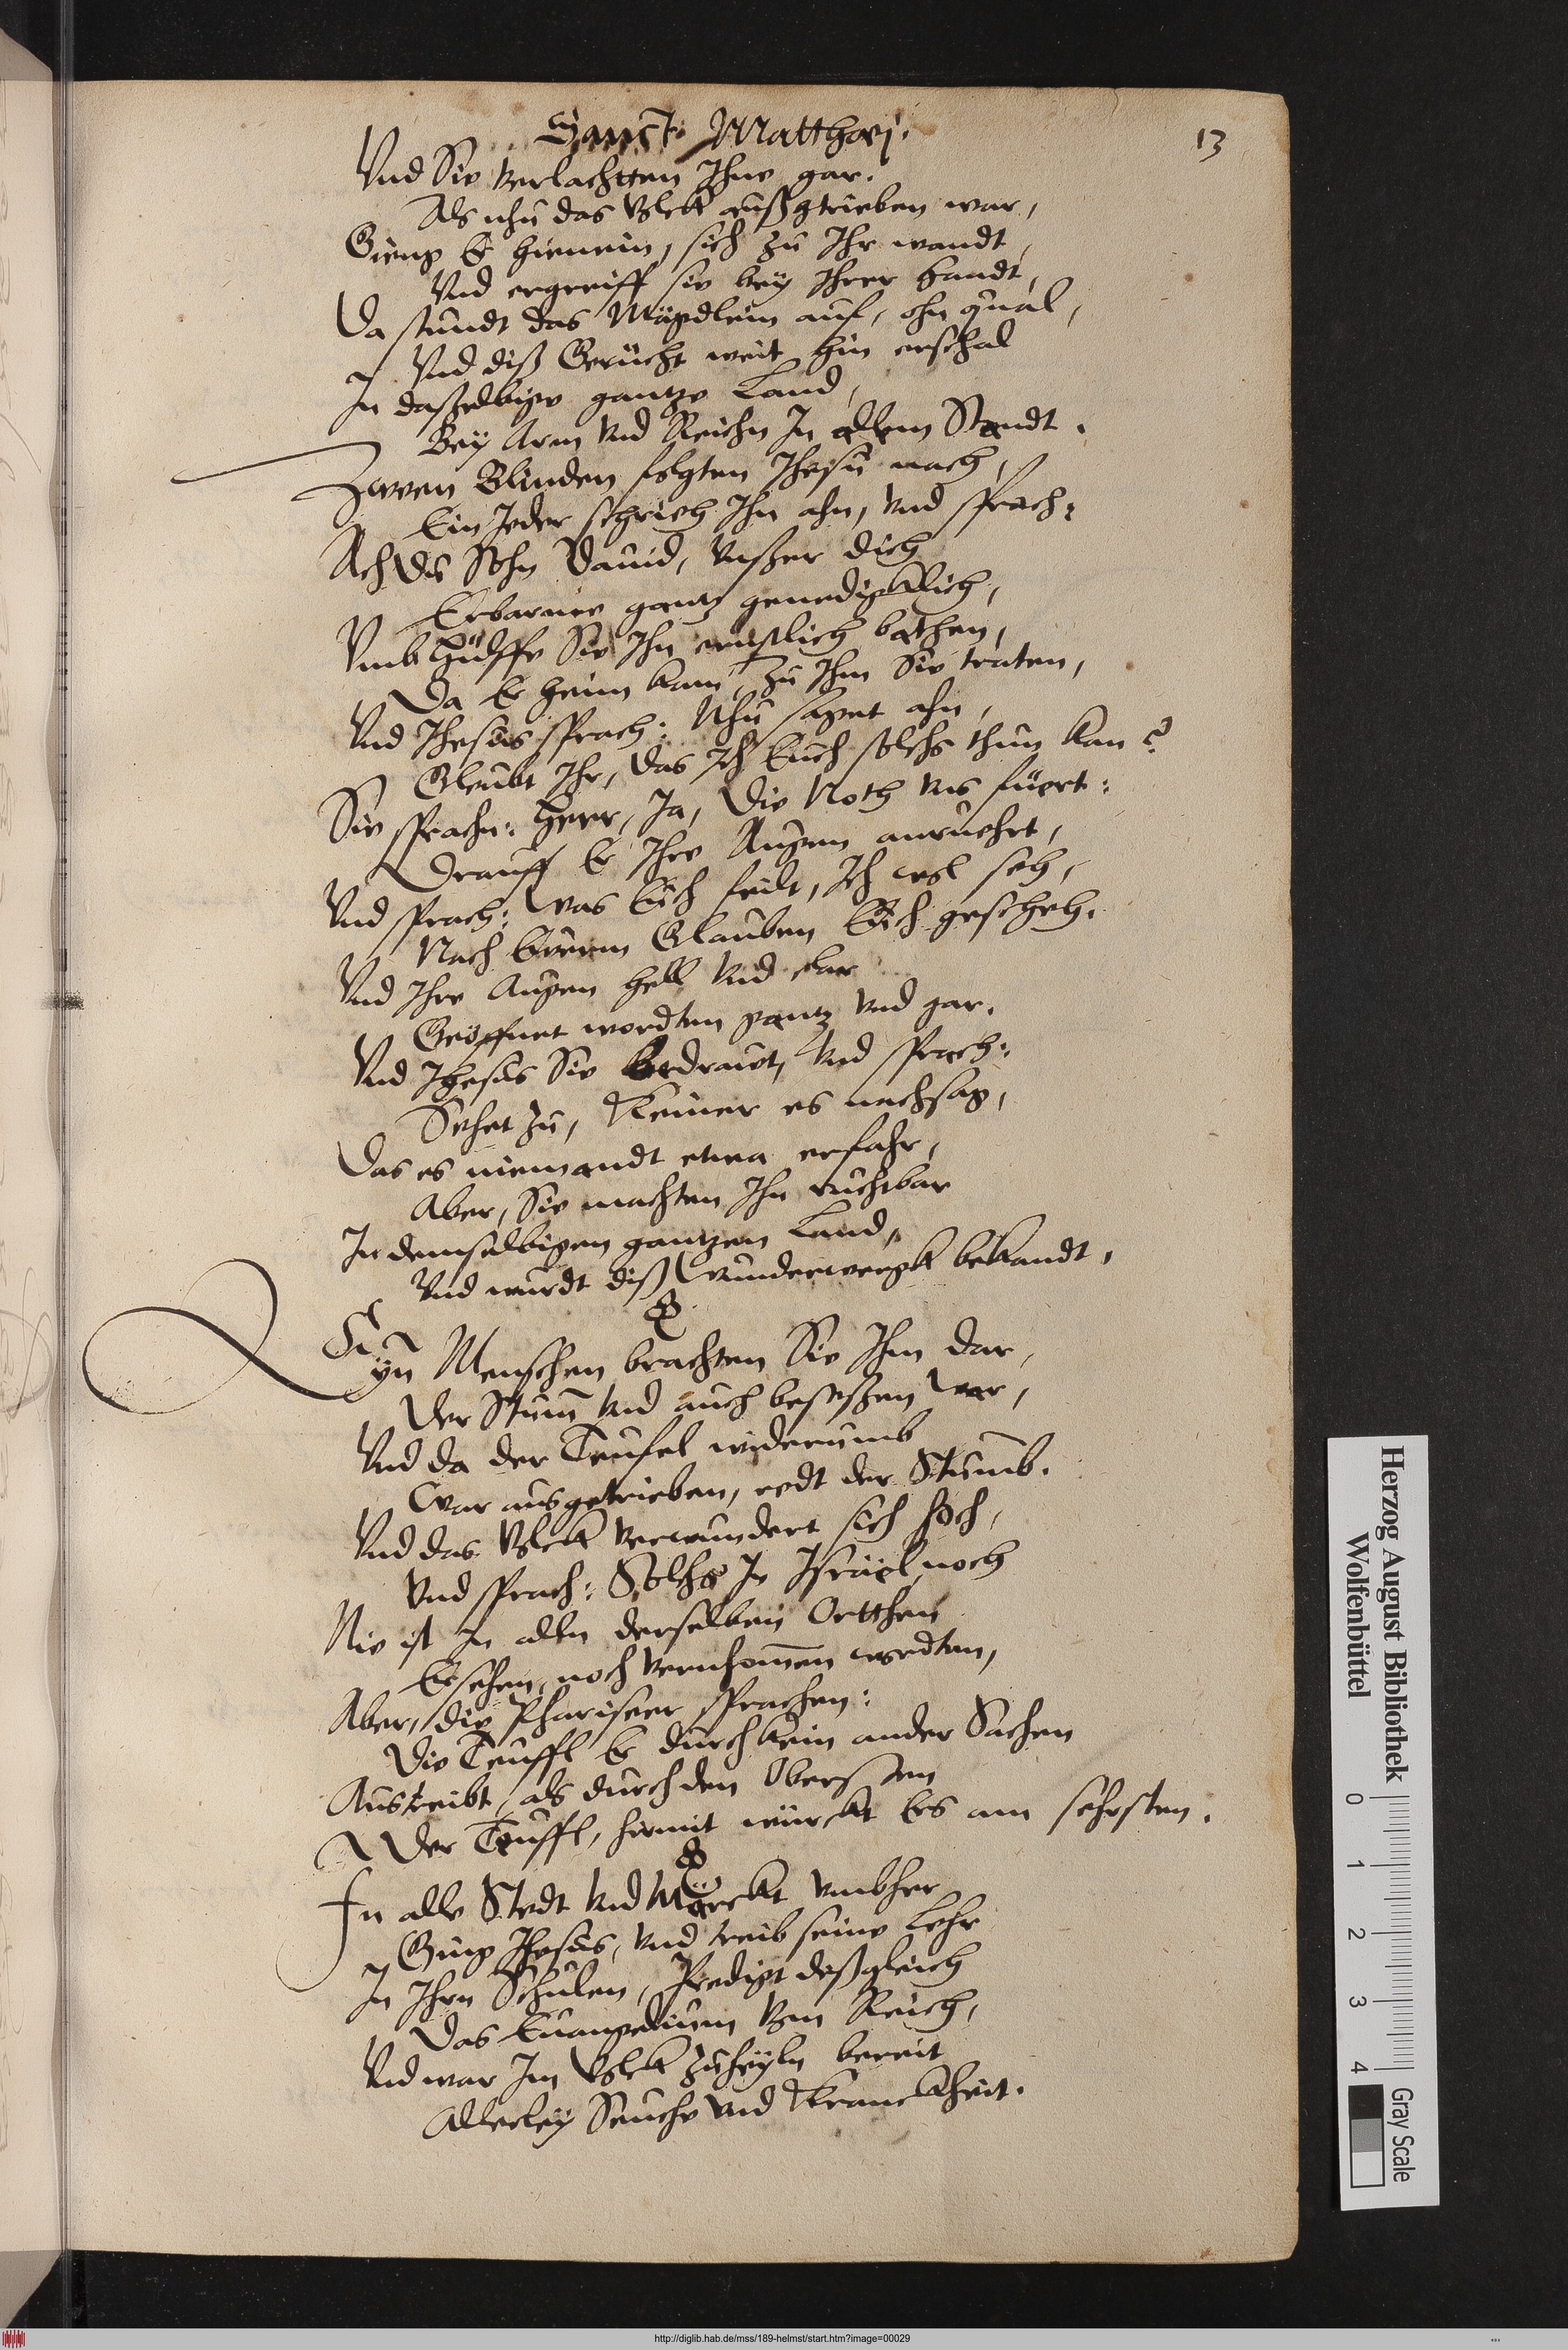 Sanct. Matthaej.
13
Vnd Sie verlachtten Ihne gar.
Als nhu das Volckk außgetrieben war,
Gieng Er hienein, sich zu Ihr wandt,
Vnd ergreiff sie bey Ihrer Handt,
Da stundt das Mägdlein auf, ohn qual,
Vnd diß Gerücht weit hin erschal
In daßelbige gantze Land,
Bey Arm vnd Reichn In allem Standt.
Zwen Blinden folgten Ihesu nach,
Ein Jeder schrieh Ihn ahn, vnd sprach:
Ach du Sohn Dauid, vnßer dich
Erbarme gantz genediglich,
Vmb Hülffe Sie Ihn ernstlich bathen,
Da Er heim kam, zu Ihm Sie traten,
Vnd Ihesus sprach: Nhu saget ahn,
Gleubt Ihr, das Ich Euch solchs thun kan?
Sie sprachn: Herr, Ja, Die Noth vns füert:
Drauff Er Ihre Augen anruehrt,
Vnd sprach: Was Euch feilt, Ich wol seh,
Nach Eurem Glauben Euch gescheh.
Vnd Ihre Augen hell vnd clar
Geöffnet wordten gantz vnd gar.
Vnd Ihesus Sie bedrawt, vnd sprach:
Sehet zu, Keiner es nachsag,
Das es niemandt etwa erfahr,
Aber, Sie machten Ihn ruchtbar
In demselbigen gantzen Land,
Vnd wurdt diß Wunderwergk bekandt.
Eyn Menschen brachten Sie Ihm dar,
Der Stum vnd auch beseßen war,
Vnd da der Teufel widerumb
War ausgetrieben, redt der Stumb.
Vnd das Volck verwundert sich hoch,
Vnd sprach: Solchs In Israel noch
Nie ist In alln derselben Ortthen
Ersehen, noch vernhomen wordten,
Aber, die Phariseer sprachen:
Die Teuffl Er durch kein ander Sachen
Austreibt, als durch den Obersten
Der Teuffl, hiemit würckt Ers am sehrsten.
In alle Stedt vnd Märckt vmbher
Ging Ihesus, vnd treib seine Lehr
In Ihrn Schulen, Predigt deßgleich
Das Euangelium vom Reich,
Vnd war Im Volck zuheyln bereit
Allerley Seuche vnd Kranckheit.
Herzog August Bibliothek
Wolfenbüttel
0 1 2 3 4
Gray Scale
http://diglib.hab.de/mss/189-helmst/start.htm?image=00029